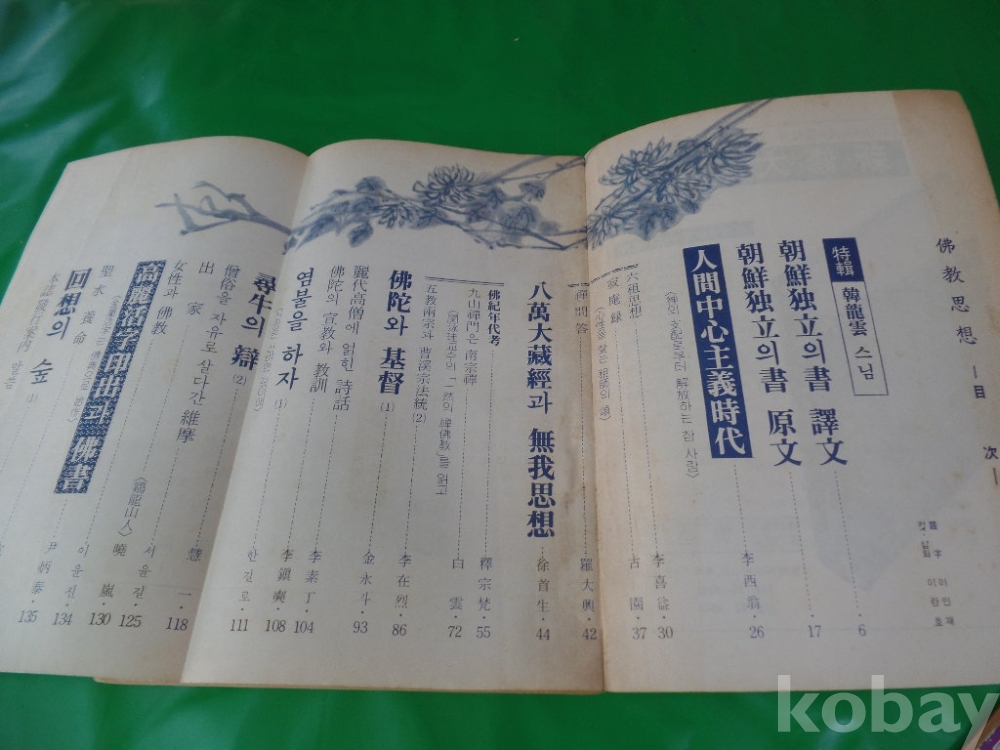 佛教思想 —目 次—
特輯 韓龍雲 스님
朝鮮独立의書 譯文 6
朝鮮独立의書 原文 17
人間中心主義時代 李西翁·26
〈神의 支配로부터 解放하는 참 사람〉
六祖思想 李喜益·30
寂庵錄 古園·37
禪問答 羅大興·42
八萬大藏經과 無我思想 徐首生·44
佛紀年代考
九山禪門은 南宗禪 釋宗梵·55
五敎兩宗과 曹溪宗法統(2) 白雲·72
佛陀와 基督(1) 李在烈·86
麗代高僧에 얽힌 詩話 金永斗·93
佛陀의 宣教와 教訓 李素丁·104
염불을 하자(1) 李鎭奭·108
尋牛의 辯(2) 한길로·111
僧俗을 자유로 살다간 維摩
出家 慧一·118
女性과 佛教 서윤길·125
〈鷄龍山人〉 曉嵐·130
聖水 이윤진·134
回想의 숲(1) 尹炳泰·135
kobay